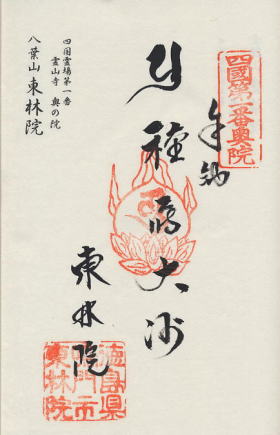 四國第一番奥院
奉納
種蒔大師
東林院
徳島県
鳴門市
東林院
四国霊場第一番
霊山寺 奥の院
八葉山 東林院